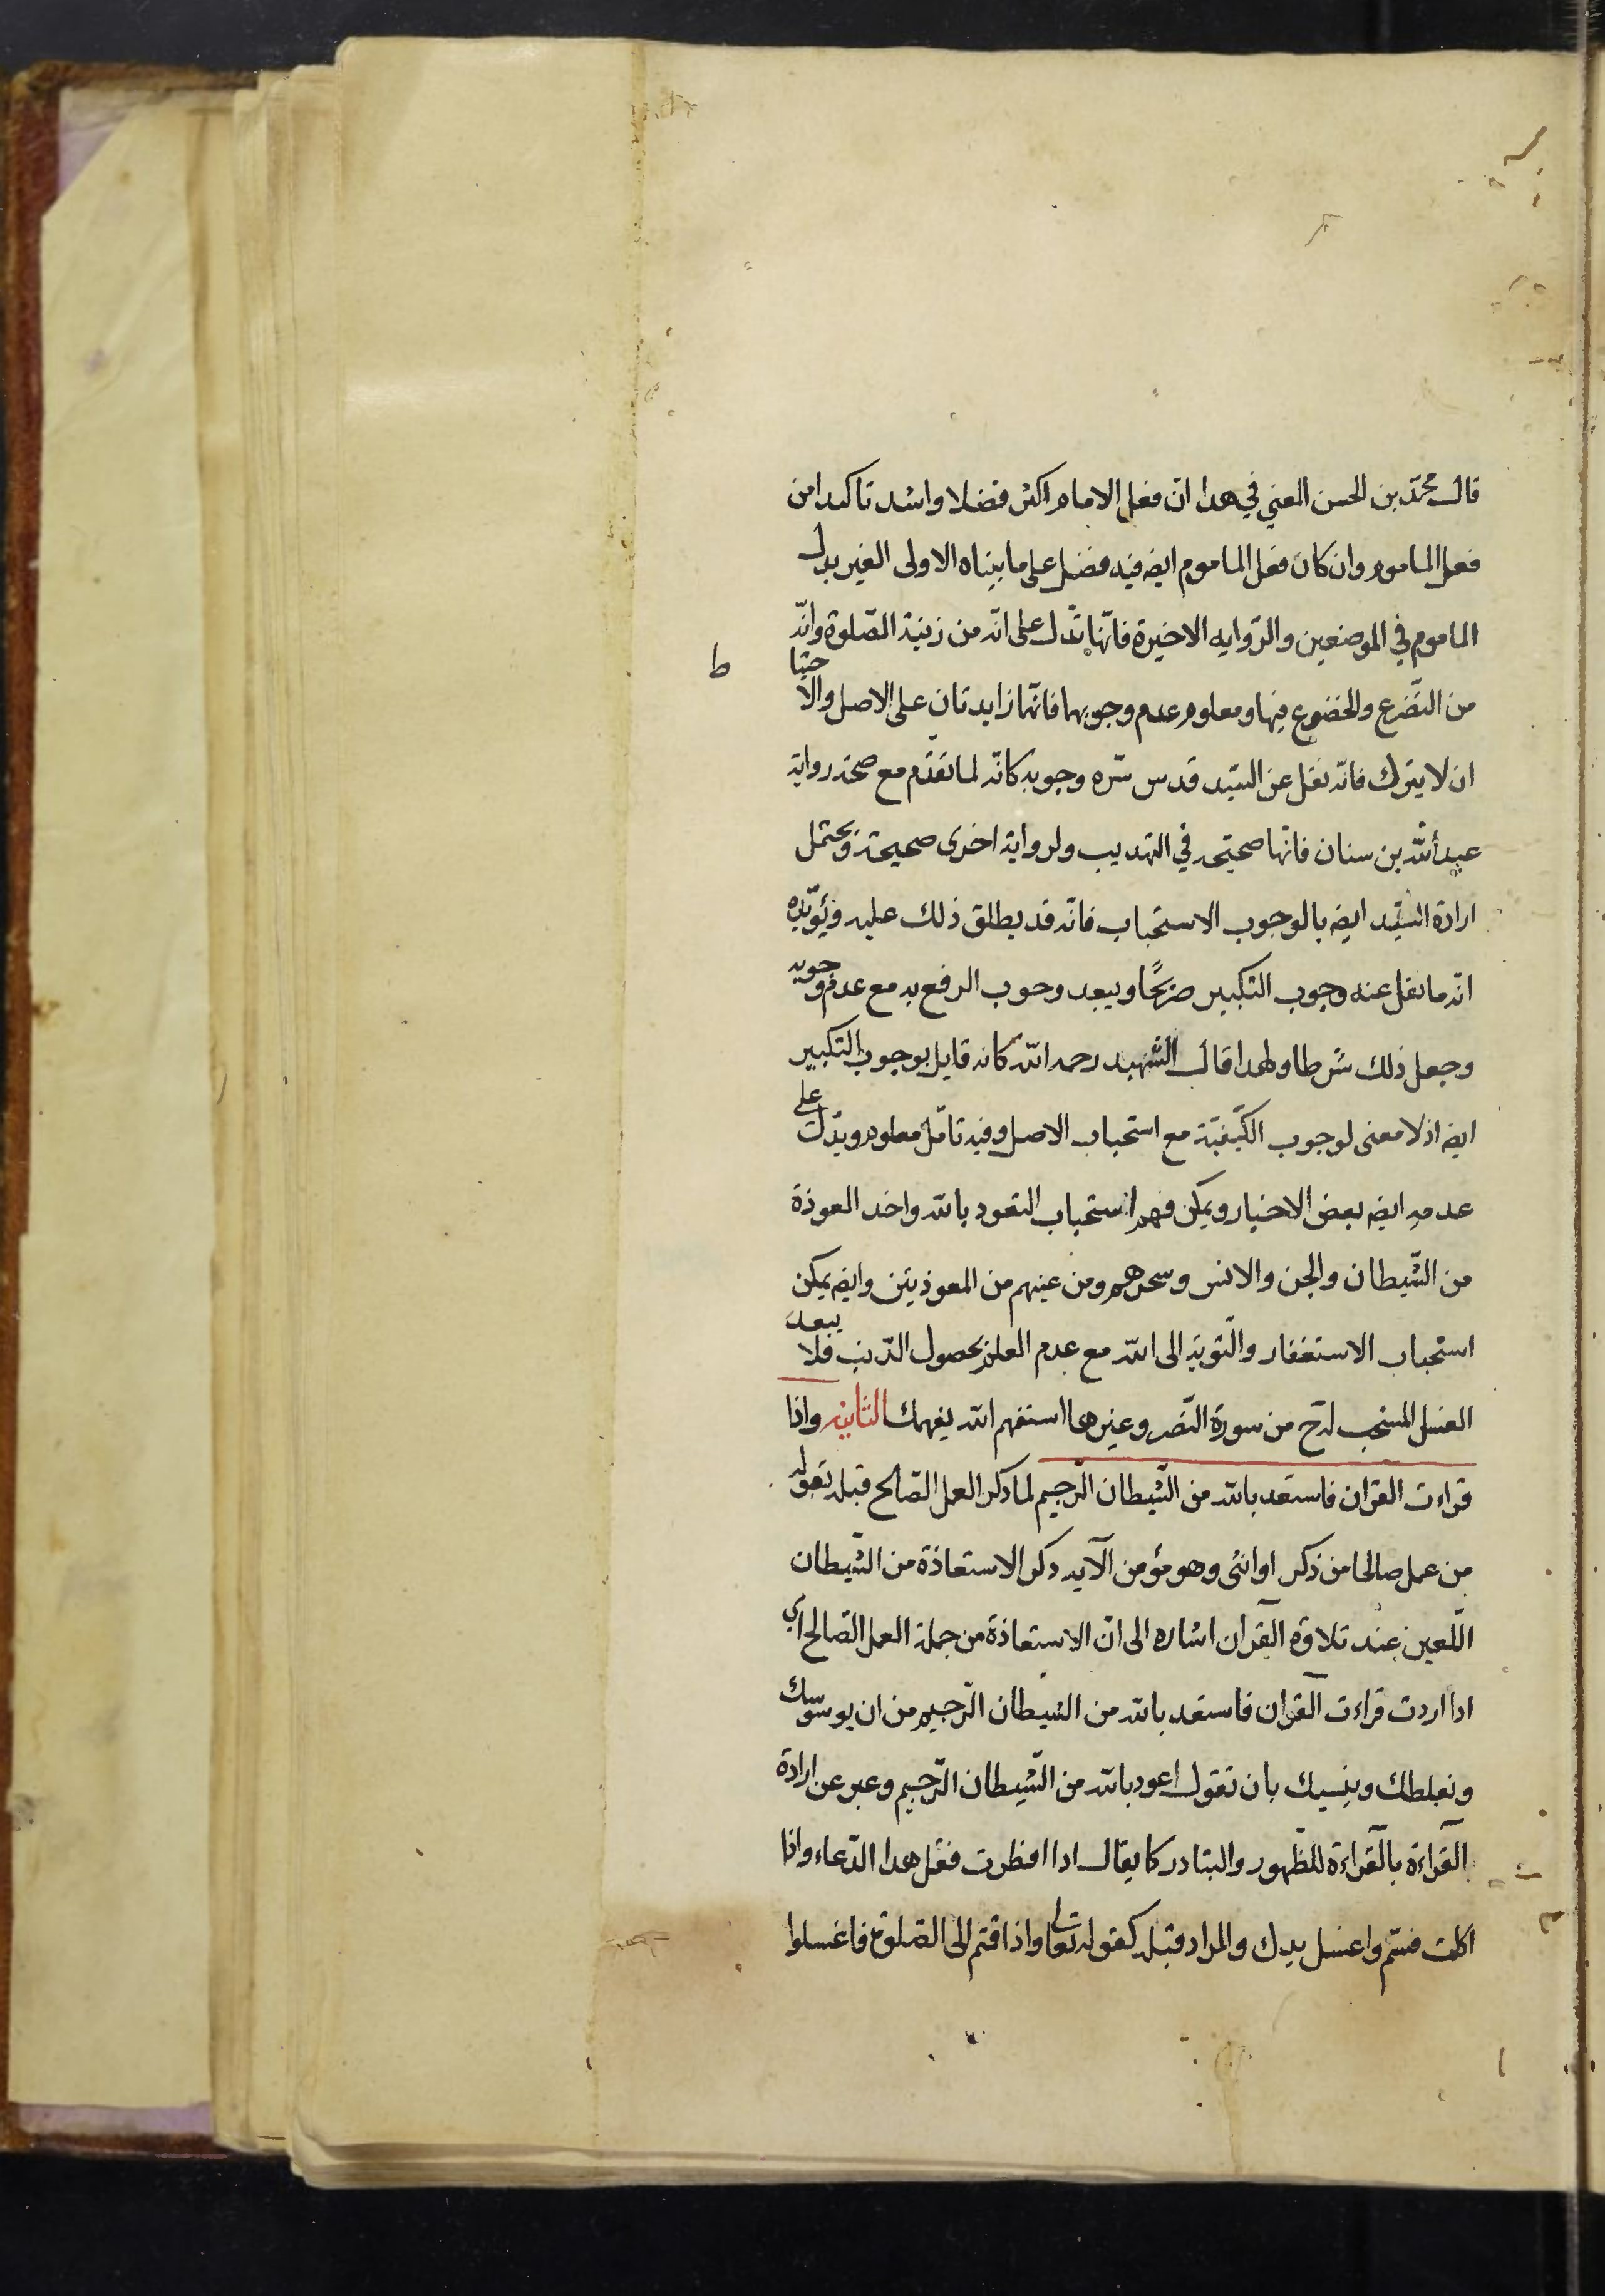 قال محمّد بن الحسن المعني في هدا ان فعل الامام اكثر فضلا واشد تاكيدا من
فعل الماموم وان كان فعل الماموم ايضه فيه فضل على ما بيناه الاولى الغير بدل
الماموم في الموضعين والرّوايه الاخيرة فانّها تدل على انّه من زينة الصّلوة وانّه
ط
من التضرع والخضوع فيها ومعلوم عدم وجوبهما فانّهما زايدتان على الاصل والاحتيا
ان لا يترك فانّه نقل عن السّيد قدس سّره وجوبه كانّه لما تقدّم مع صحة رواية
عبد اللّه بن سنان فانّها صحيحه في التهديب ولرواية اخرى صحيحة ويحتمل
ارادة السّيّد ايضه بالوجوب الاستحباب فانّه قد يطلق ذلك عليه ويؤيّده
انّه ما نقل عنه وجوب التكبير صريحًا ويبعد وجوب الرفع به مع عدم وجوبه
وجعل ذلك شرطا ولهدا قال الشهيد رحمه اللّه كانه قايل بوجوب التكبير
ايضه اذ لا معنى لوجوب الكيّفيّة مع استحباب الاصل وفيه تامّل معلوم ويدّل على
عدمه ايضه بعض الاخبار ويمكن فهم استحباب التعود باللّه واخد العوذة
من الشّيطان والجن والانس وسحرهم ومن عينهم من المعوذيتن وايضه يمكن
استحباب الاستغفار والتّوبة الى اللّه مع عدم العلم بحصول الدّنب فلا يبعد
الغسل المستحب له ح من سورة النّصر وغيرها استفهم اللّه يفهمك الثانية واذا
قراءت القران فاستعد باللّه من الشّيطان الرّجيم لما دكر العمل الصّالح قبله بقوله
من عمل صالحا من ذكر او انثى وهو مؤمن الآيه دكر الاستعاذة من الشّيطان
اللّعين عند تلاوة القرآن اشاره الى انّ الاستعاذة من جملة العمل الصّالح اي
ادا اردت قراءت القرآن فاستعد باللّه من الشيطان الرّجيم من ان يوسوسك
ويغلطك وينسيك بان تقول اعود باللّه من الشّيطان الرّجيم وعبر عن ارادة
القرآءة بالقرآءة للظّهور والتبادر كما يقال ادا افطرت فقل هدا الدّعاء واذا
اكلت فسّم واغسل يدك والمراد قبله كقوله تعالى واذا قمتم الى الصّلوة فاغسلوا